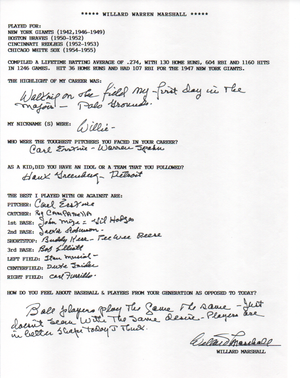 ***** WILLARD WARREN MARSHALL *****
PLAYED FOR:
NEW YORK GIANTS (1942,1946-1949)
BOSTON BRAVES (1950-1952)
CINCINNATI REDLEGS (1952-1953)
CHICAGO WHITE SOX (1954-1955)
COMPILED A LIFETIME BATTING AVERAGE OF .274, WITH 130 HOME RUNS, 604 RBI AND 1160 HITS
IN 1246 GAMES. HIT 36 HOME RUNS AND HAD 107 RBI FOR THE 1947 NEW YORK GIANTS.
THE HIGHLIGHT OF MY CAREER WAS:
Walking on the field my first day in the
Majors - Polo Grounds.
MY NICKNAME (S) WERE:
Willie -
WHO WERE THE TOUGHEST PITCHERS YOU FACED IN YOUR CAREER?
Carl Erskine - Warren Spahn
AS A KID, DID YOU HAVE AN IDOL OR A TEAM THAT YOU FOLLOWED?
Hank Greenberg - Detroit
THE BEST I PLAYED WITH OR AGAINST ARE:
PITCHER: Carl Erskine
CATCHER: Roy CAMPANELLA
1st BASE: John Mize - Gil Hodges
2nd BASE: Jackie Robinson -
SHORTSTOP: Buddy Kerr - Pee Wee Reese
3rd BASE: Bob Elliott
LEFT FIELD: Stan Musial -
CENTERFIELD: Duke Snider
RIGHT FIELD: Carl Furillo
HOW DO YOU FEEL ABOUT BASEBALL & PLAYERS FROM YOUR GENERATION AS OPPOSED TO TODAY?
Ball players play the Game the same - Just
doesn't seem with the same desire - Players are
in better shape today I think.
Willard Marshall
WILLARD MARSHALL